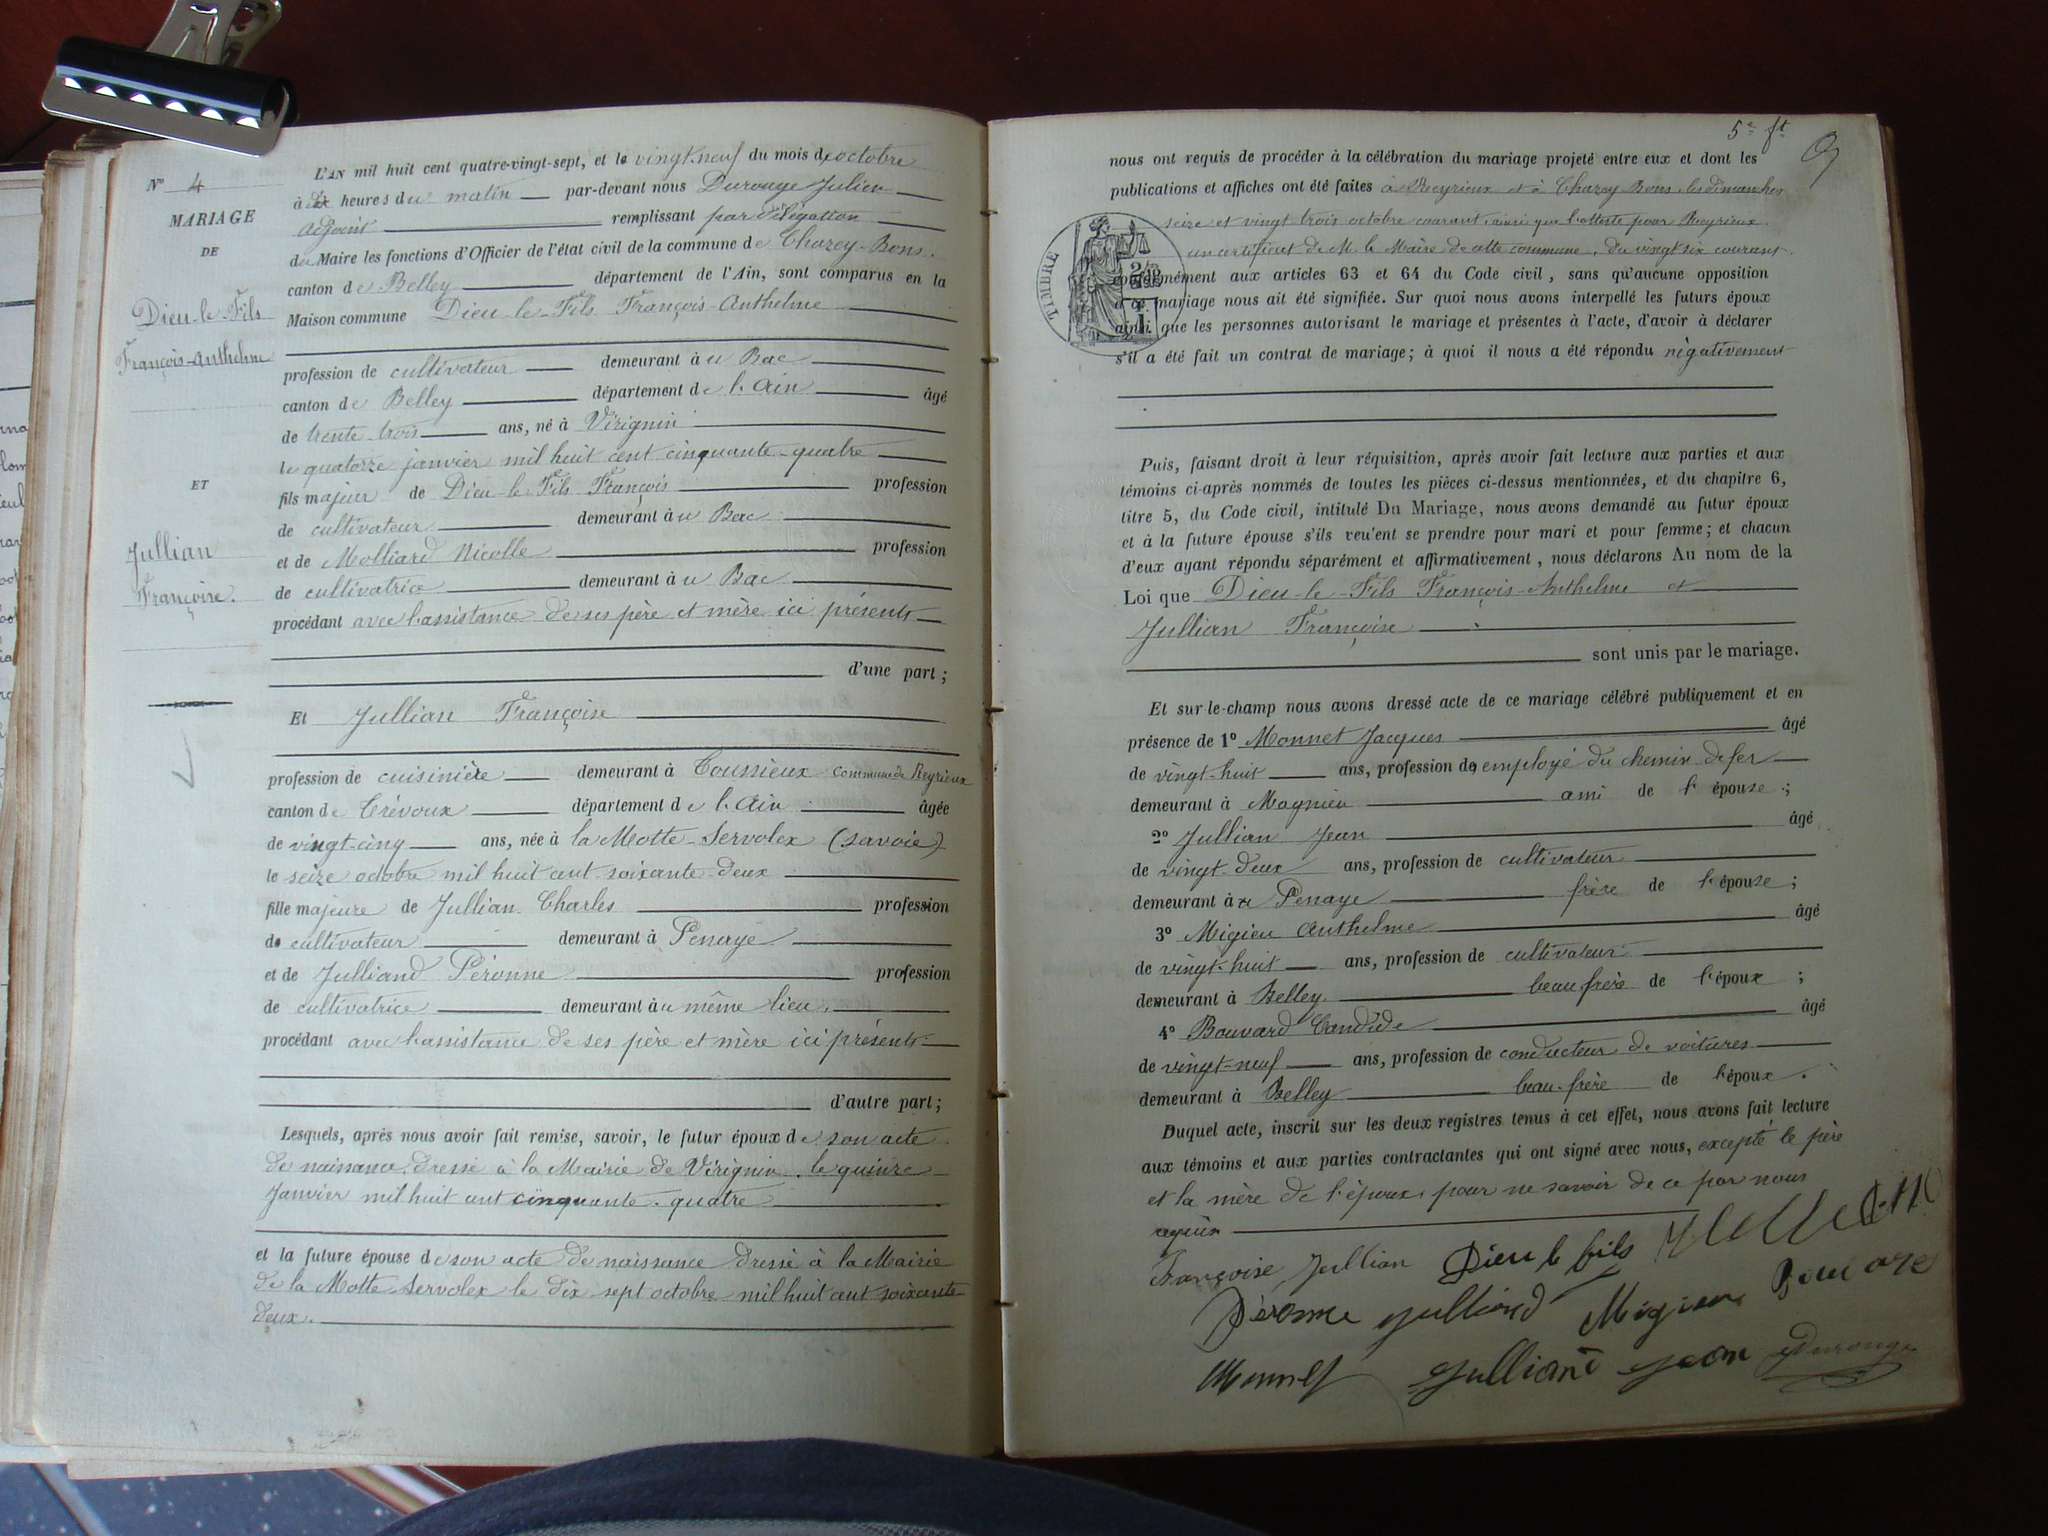 N° 4
MARIAGE
DE
Dieu-le-Fils
François-Anthelme
ET
Jullian
Françoise.
L'AN mil huit cent quatre-vingt-sept, et le vingt-neuf du mois d'octobre
à dix heures du matin par-devant nous Durouge Julien
adjoint remplissant par délégation
du Maire les fonctions d'Officier de l'état civil de la commune de Chazey-Bons.
canton de Belley département de l'Ain, sont comparus en la
Maison commune Dieu-le-Fils François-Anthelme
profession de cultivateur demeurant à u Bac
canton de Belley département de l'Ain âgé
de trente-trois ans, né à Virignin
le quatorze janvier mil huit cent cinquante-quatre
fils majeur de Dieu-le-Fils François profession
de cultivateur demeurant à u Bac
et de Molliard Nicolle profession
de cultivatrice demeurant à u Bac
procédant avec l'assistance de ses père et mère ici présents
d'une part;
Et Jullian Françoise
profession de cuisinière demeurant à Toussieux commune de Reyrieux
canton de Trévoux département de l'Ain âgée
de vingt-cinq ans, née à la Motte-Servolex (Savoie)
le seize octobre mil huit cent soixante-deux
fille majeure de Jullian Charles profession
de cultivateur demeurant à Penaye
et de Julliand Péronne profession
de cultivatrice demeurant à u même lieu
procédant avec l'assistance de ses père et mère ici présents
d'autre part;
Lesquels, après nous avoir fait remise, savoir, le futur époux de son acte
de naissance dressé à la Mairie de Virignin, le quinze
Janvier mil huit cent cinquante-quatre
et la future épouse de son acte de naissance dressé à la Mairie
de la Motte Servolex le dix sept octobre mil huit cent soixante
deux.
5e ft
nous ont requis de procéder à la célébration du mariage projeté entre eux et dont les
publications et affiches ont été faites à Reyrieux et à Chazey-Bons, les dimanches
seize et vingt trois octobre courant, ainsi que l'atteste pour Reyrieux
un certificat de M. le Maire de cette commune, du vingt six courant.
TIMBRE
conformément aux articles 63 et 64 du Code civil, sans qu'aucune opposition
à ce mariage nous ait été signifiée. Sur quoi nous avons interpellé les futurs époux
ainsi que les personnes autorisant le mariage et présentes à l'acte, d'avoir à déclarer
s'il a été fait un contrat de mariage; à quoi il nous a été répondu négativement
Puis, faisant droit à leur réquisition, après avoir fait lecture aux parties et aux
témoins ci-après nommés de toutes les pièces ci-dessus mentionnées, et du chapitre 6,
titre 5, du Code civil, intitulé Du Mariage, nous avons demandé au futur époux
et à la future épouse s'ils veu'ent se prendre pour mari et pour femme; et chacun
d'eux ayant répondu séparément et affirmativement, nous déclarons Au nom de la
Loi que Dieu-le-Fils François-Anthelme et
Jullian Françoise
sont unis par le mariage.
Et sur-le-champ nous avons dressé acte de ce mariage célébré publiquement et en
présence de 1° Monnet Jacques âgé
de vingt-huit ans, profession de employé du chemin de fer
demeurant à Magnieu ami de l'épouse;
2° Jullian Jean âgé
de vingt-deux ans, profession de cultivateur
demeurant à Penaye frère de l'épouse;
3° Migieu Anthelme âgé
de vingt-huit ans, profession de cultivateur
demeurant à Belley beau frère de l'époux;
4° Bouvard Candide âgé
de vingt-neuf ans, profession de conducteur de voitures
demeurant à Belley beau-frère de l'époux.
Duquel acte, inscrit sur les deux registres tenus à cet effet, nous avons fait lecture
aux témoins et aux parties contractantes qui ont signé avec nous, excepté le père
et la mère de l'époux pour ne savoir de ce par nous
requis
Françoise Jullian Dieu le fils
Péronne Julliand Migieu Bouvard
Monnet Julliand Jean Durouge